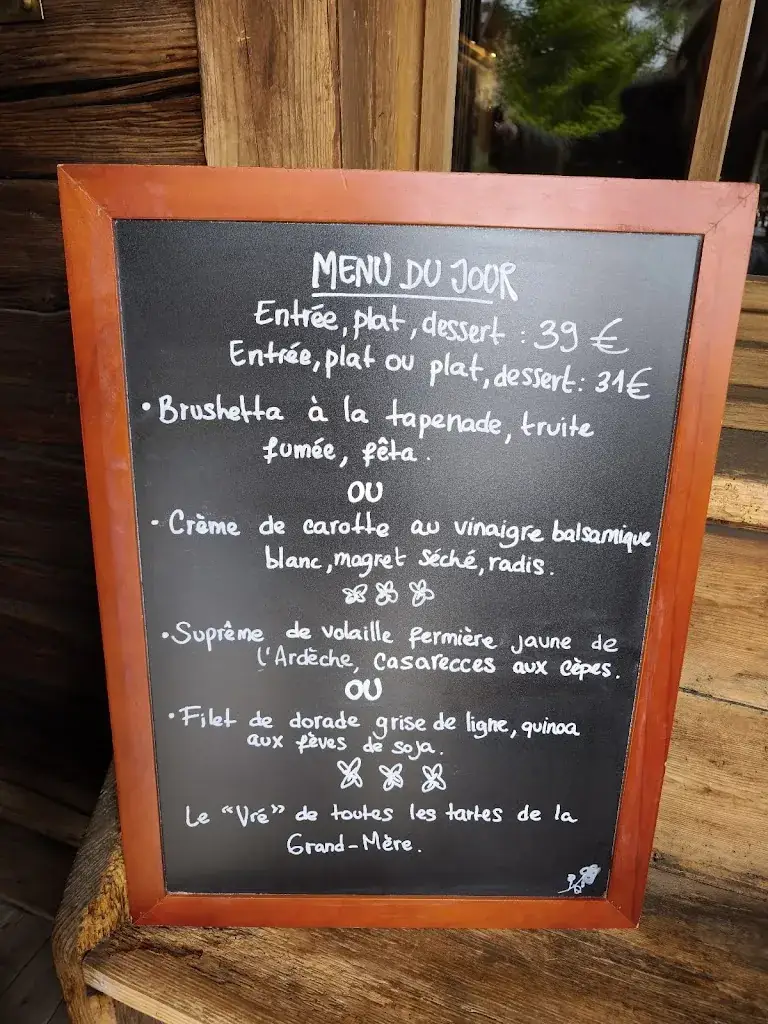 MENU DU JOUR
Entrée, plat, dessert : 39 €
Entrée, plat ou plat, dessert: 31€
• Brushetta à la tapenade, truite
fumée, fêta.
OU
• Crème de carotte au vinaigre balsamique
blanc, magret séché, radis.
• Suprême de volaille fermière jaune de
l'Ardèche, casarecces aux cèpes.
OU
• Filet de dorade grise de ligne, quinoa
aux fèves de soja.
Le "Vré" de toutes les tartes de la
Grand-Mère.